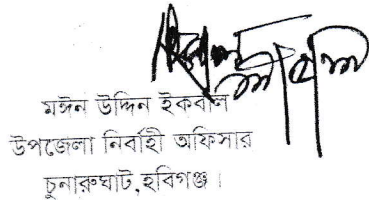 মঈন উদ্দিন ইকবাল
উপজেলা নির্বাহী অফিসার
চুনারুঘাট,হবিগঞ্জ।